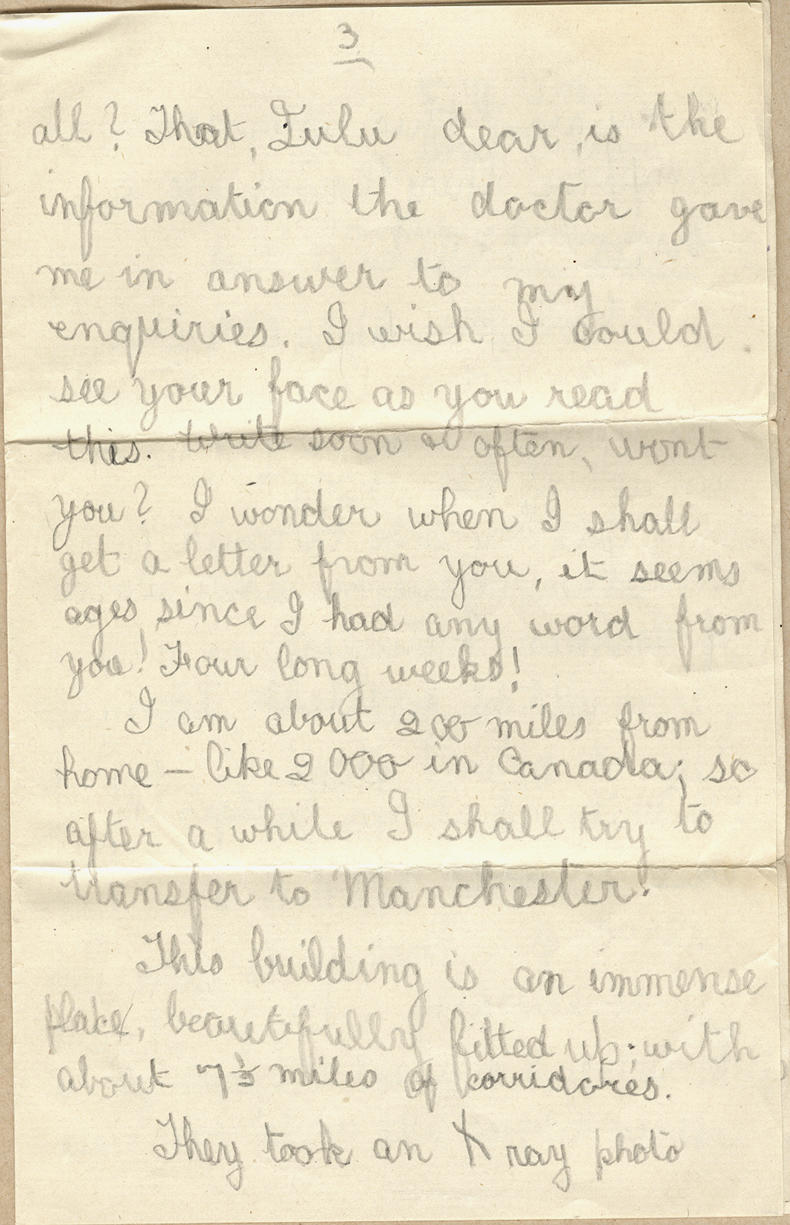 3
all? That, Lulu dear, is the
information the doctor gave
me in answer to my
enquiries. I wish I could
see your face as you read
this. Write soon & often, wont
you? I wonder when I shall
get a letter from you, it seems
ages since I had any word from
you! Four long weeks!
I am about 200 miles from
home – like 2000 in Canada; so
after a while I shall try to
transfer to Manchester.
This building is an immense
place, beautifully fitted up; with
about 7½ miles of corridores.
They took an X ray photo